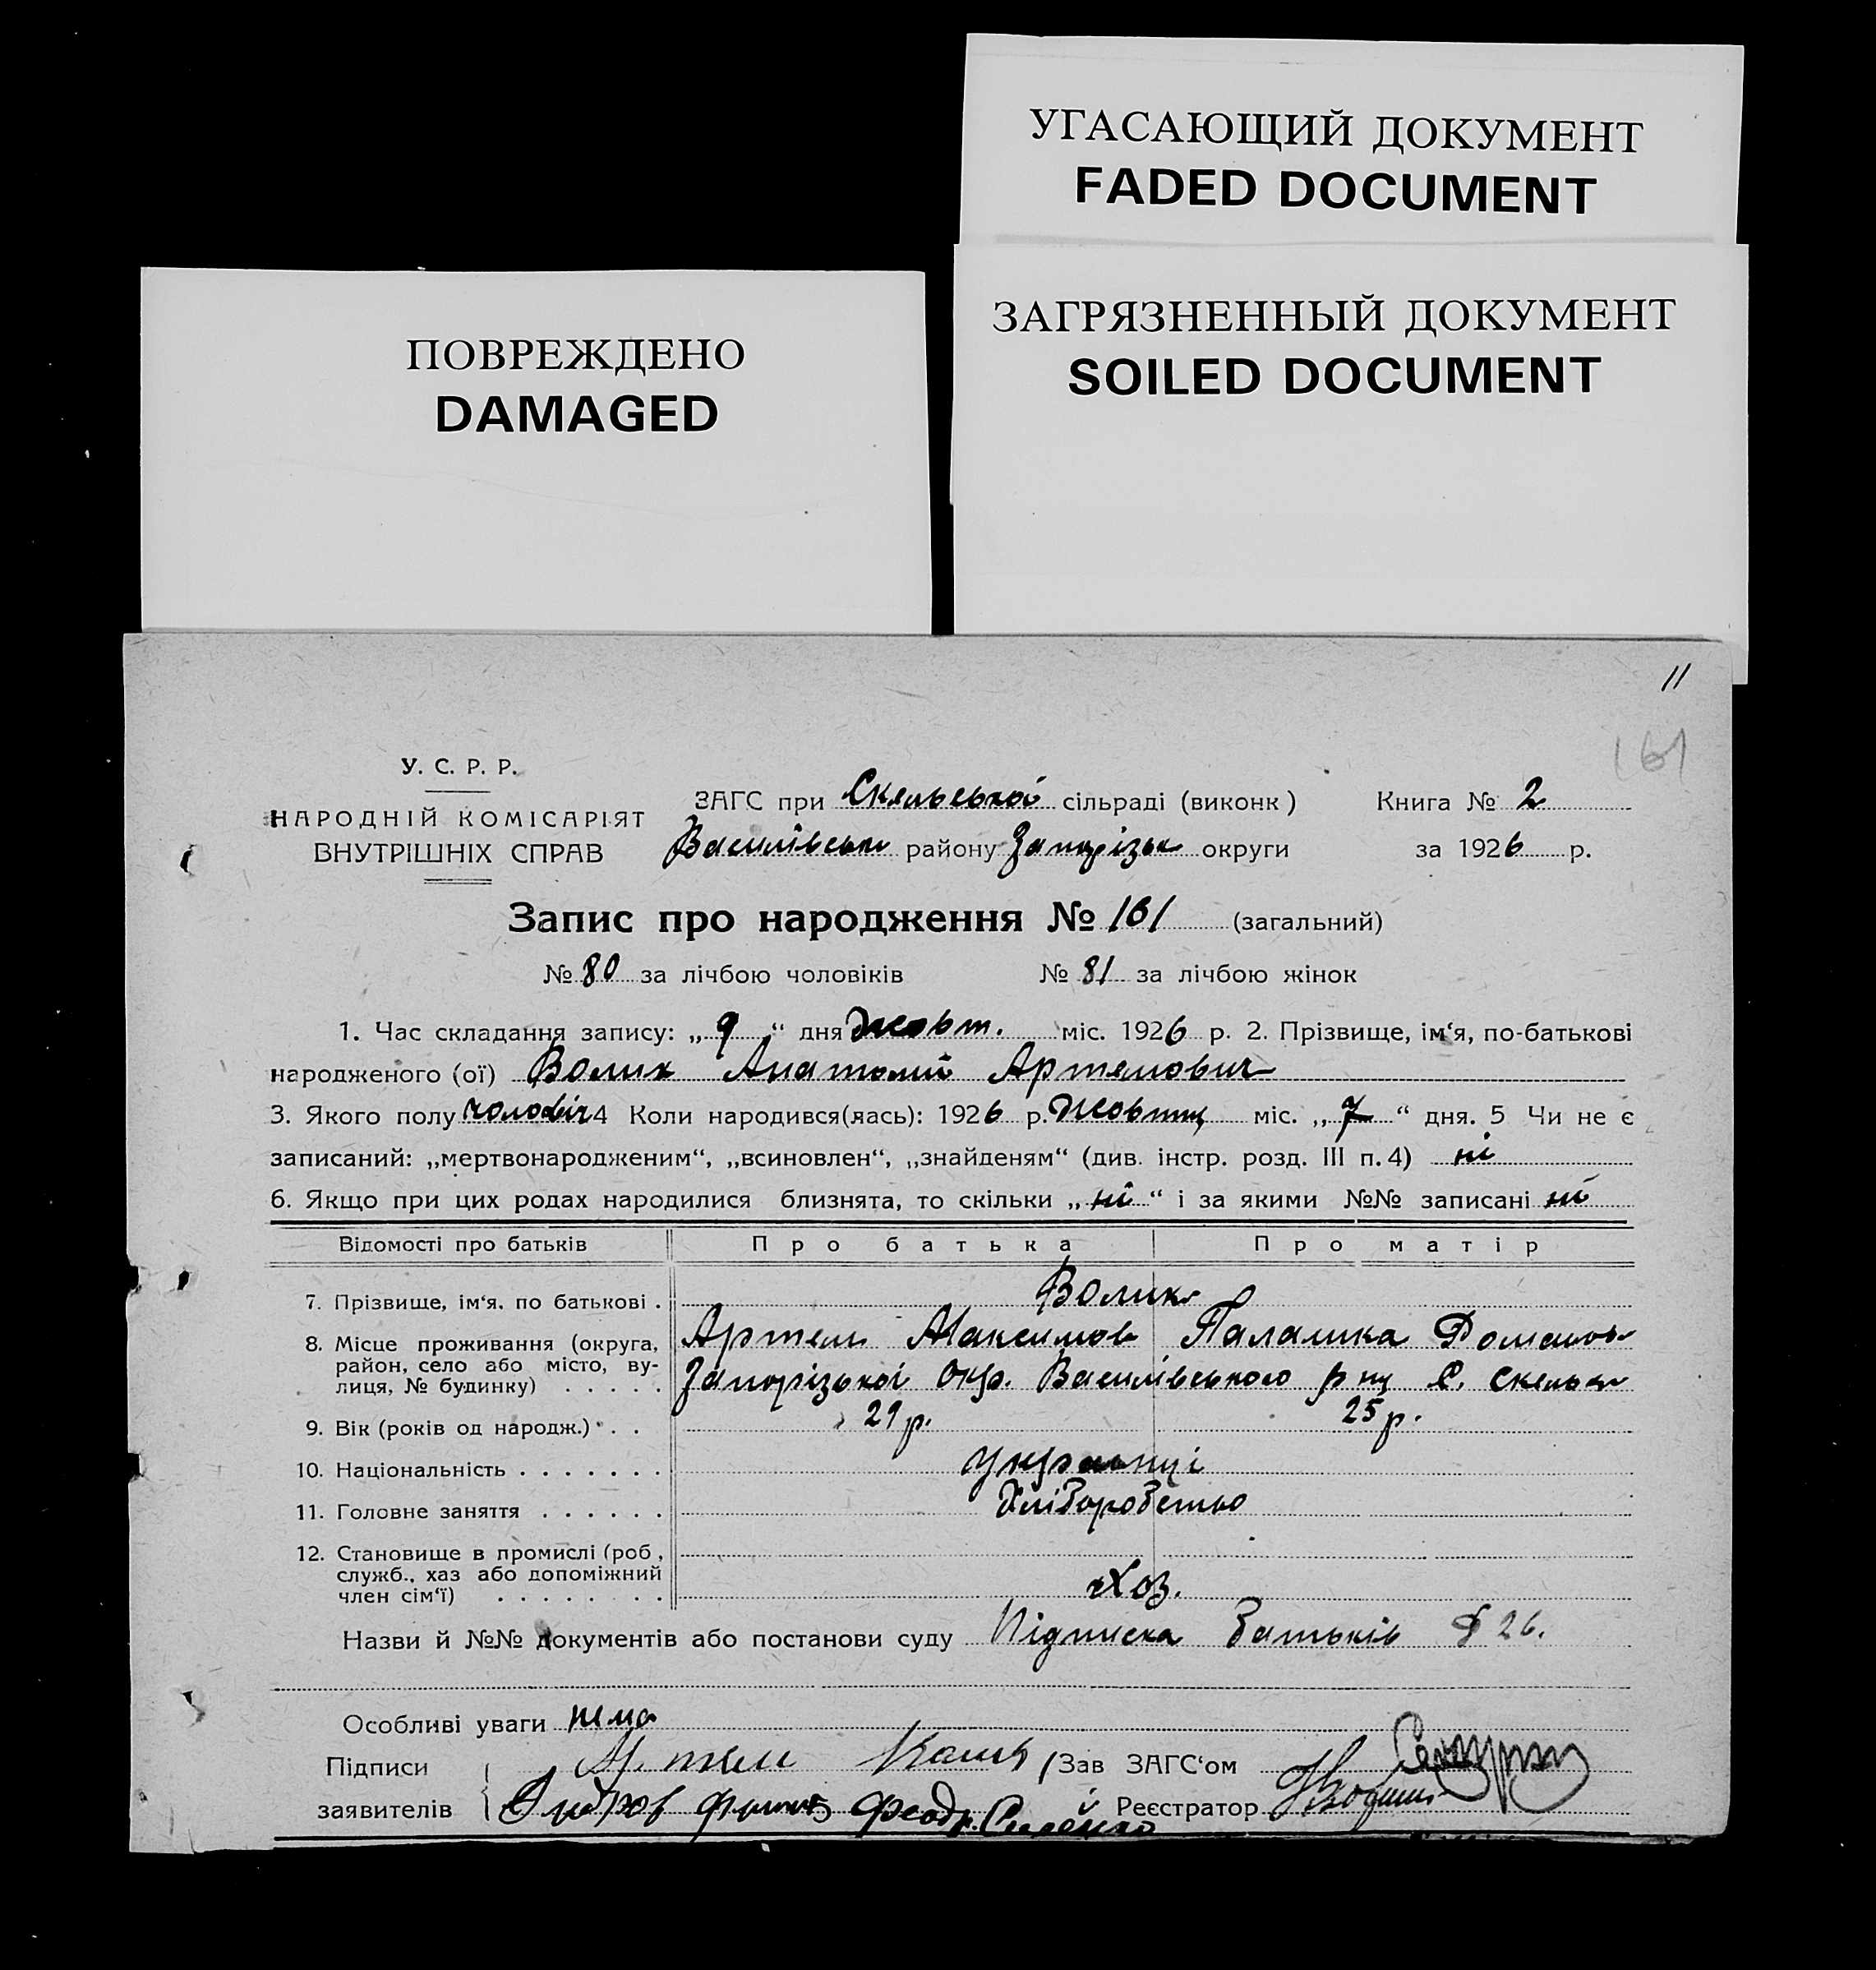 УГАСАЮЩИЙ ДОКУМЕНТ
FADED DOCUMENT
ЗАГРЯЗНЕННЫЙ ДОКУМЕНТ
SOILED DOCUMENT
ПОВРЕЖДЕНО
DAMAGED
11
161
У. С. Р. Р.
НАРОДНІЙ КОМІСАРІЯТ
ВНУТРІШНІХ СПРАВ
ЗАГС при Скельської сільраді (виконк) Книга № 2
Василівськ району Запорізьк округи за 1926 р.
Запис про народження № 161 (загальний)
№ 80 за лічбою чоловіків № 81 за лічбою жінок
1. Час складання запису: „ 9 “ дня жовт. міс. 1926 р. 2. Прізвище, ім‘я, по-батькові
народженого (ої) Волик Анатолій Артемович
3. Якого полу чоловіч 4 Коли народився(лась): 1926 р. жовтц міс. „ 7 “ дня. 5 Чи не є
записаний: „мертвонародженим“, „всиновлен“, „знайденям“ (див. інстр. розд. III п. 4) ні
6. Якщо при цих родах народилися близнята, то скільки „ ні “ і за якими №№ записані ні
Відомості про батьків Про батька Про матір
7. Прізвище, ім‘я, по батькові . Волик
8. Місце проживання (округа, Артем Максимов Паламка Домахов
район, село або місто, ву- Запорізької Окр. Василівського р ну С. Скельки
лиця, № будинку) . . . . .
9. Вік (років од народж.) . . 29 р. 25 р.
10. Національність . . . . . . . Українці
11. Головне заняття . . . . . . Хліборобство
12. Становище в промислі (роб.,
служб., хаз або допоміжний
член сім‘ї) . . . . . . . . Хоз.
Назви й №№ документів або постанови суду Підписка батьків § 26.
Особливі уваги нема
Підписи Зав ЗАГС‘ом
заявителів Реєстратор